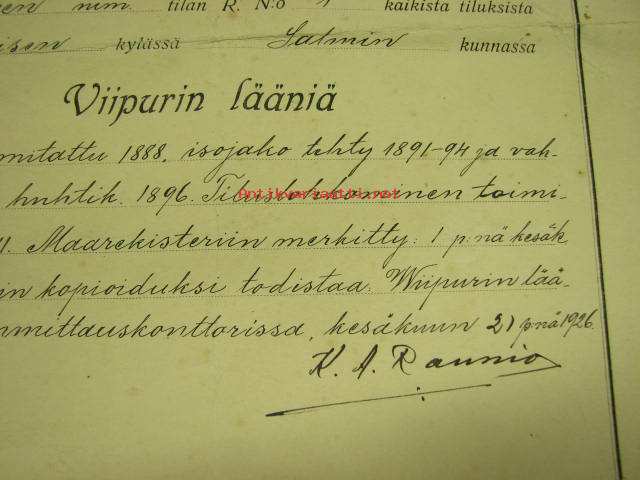 een nim. tilan R. N:o 1 kaikista tiluksista
isen kylässä Salmin kunnassa
Viipurin lääniä
mitattu 1888, isojako tehty 1891-94 ja vah-
huhtik. 1896. toimi-
Antikvariaatti.net
11. Maarekisteriin merkitty: 1 p:nä kesäk
in kopioiduksi todistaa. Wiipurin lää-
nmittauskonttorissa, kesäkuun 21 p:nä 1926.
K. A. Raunio